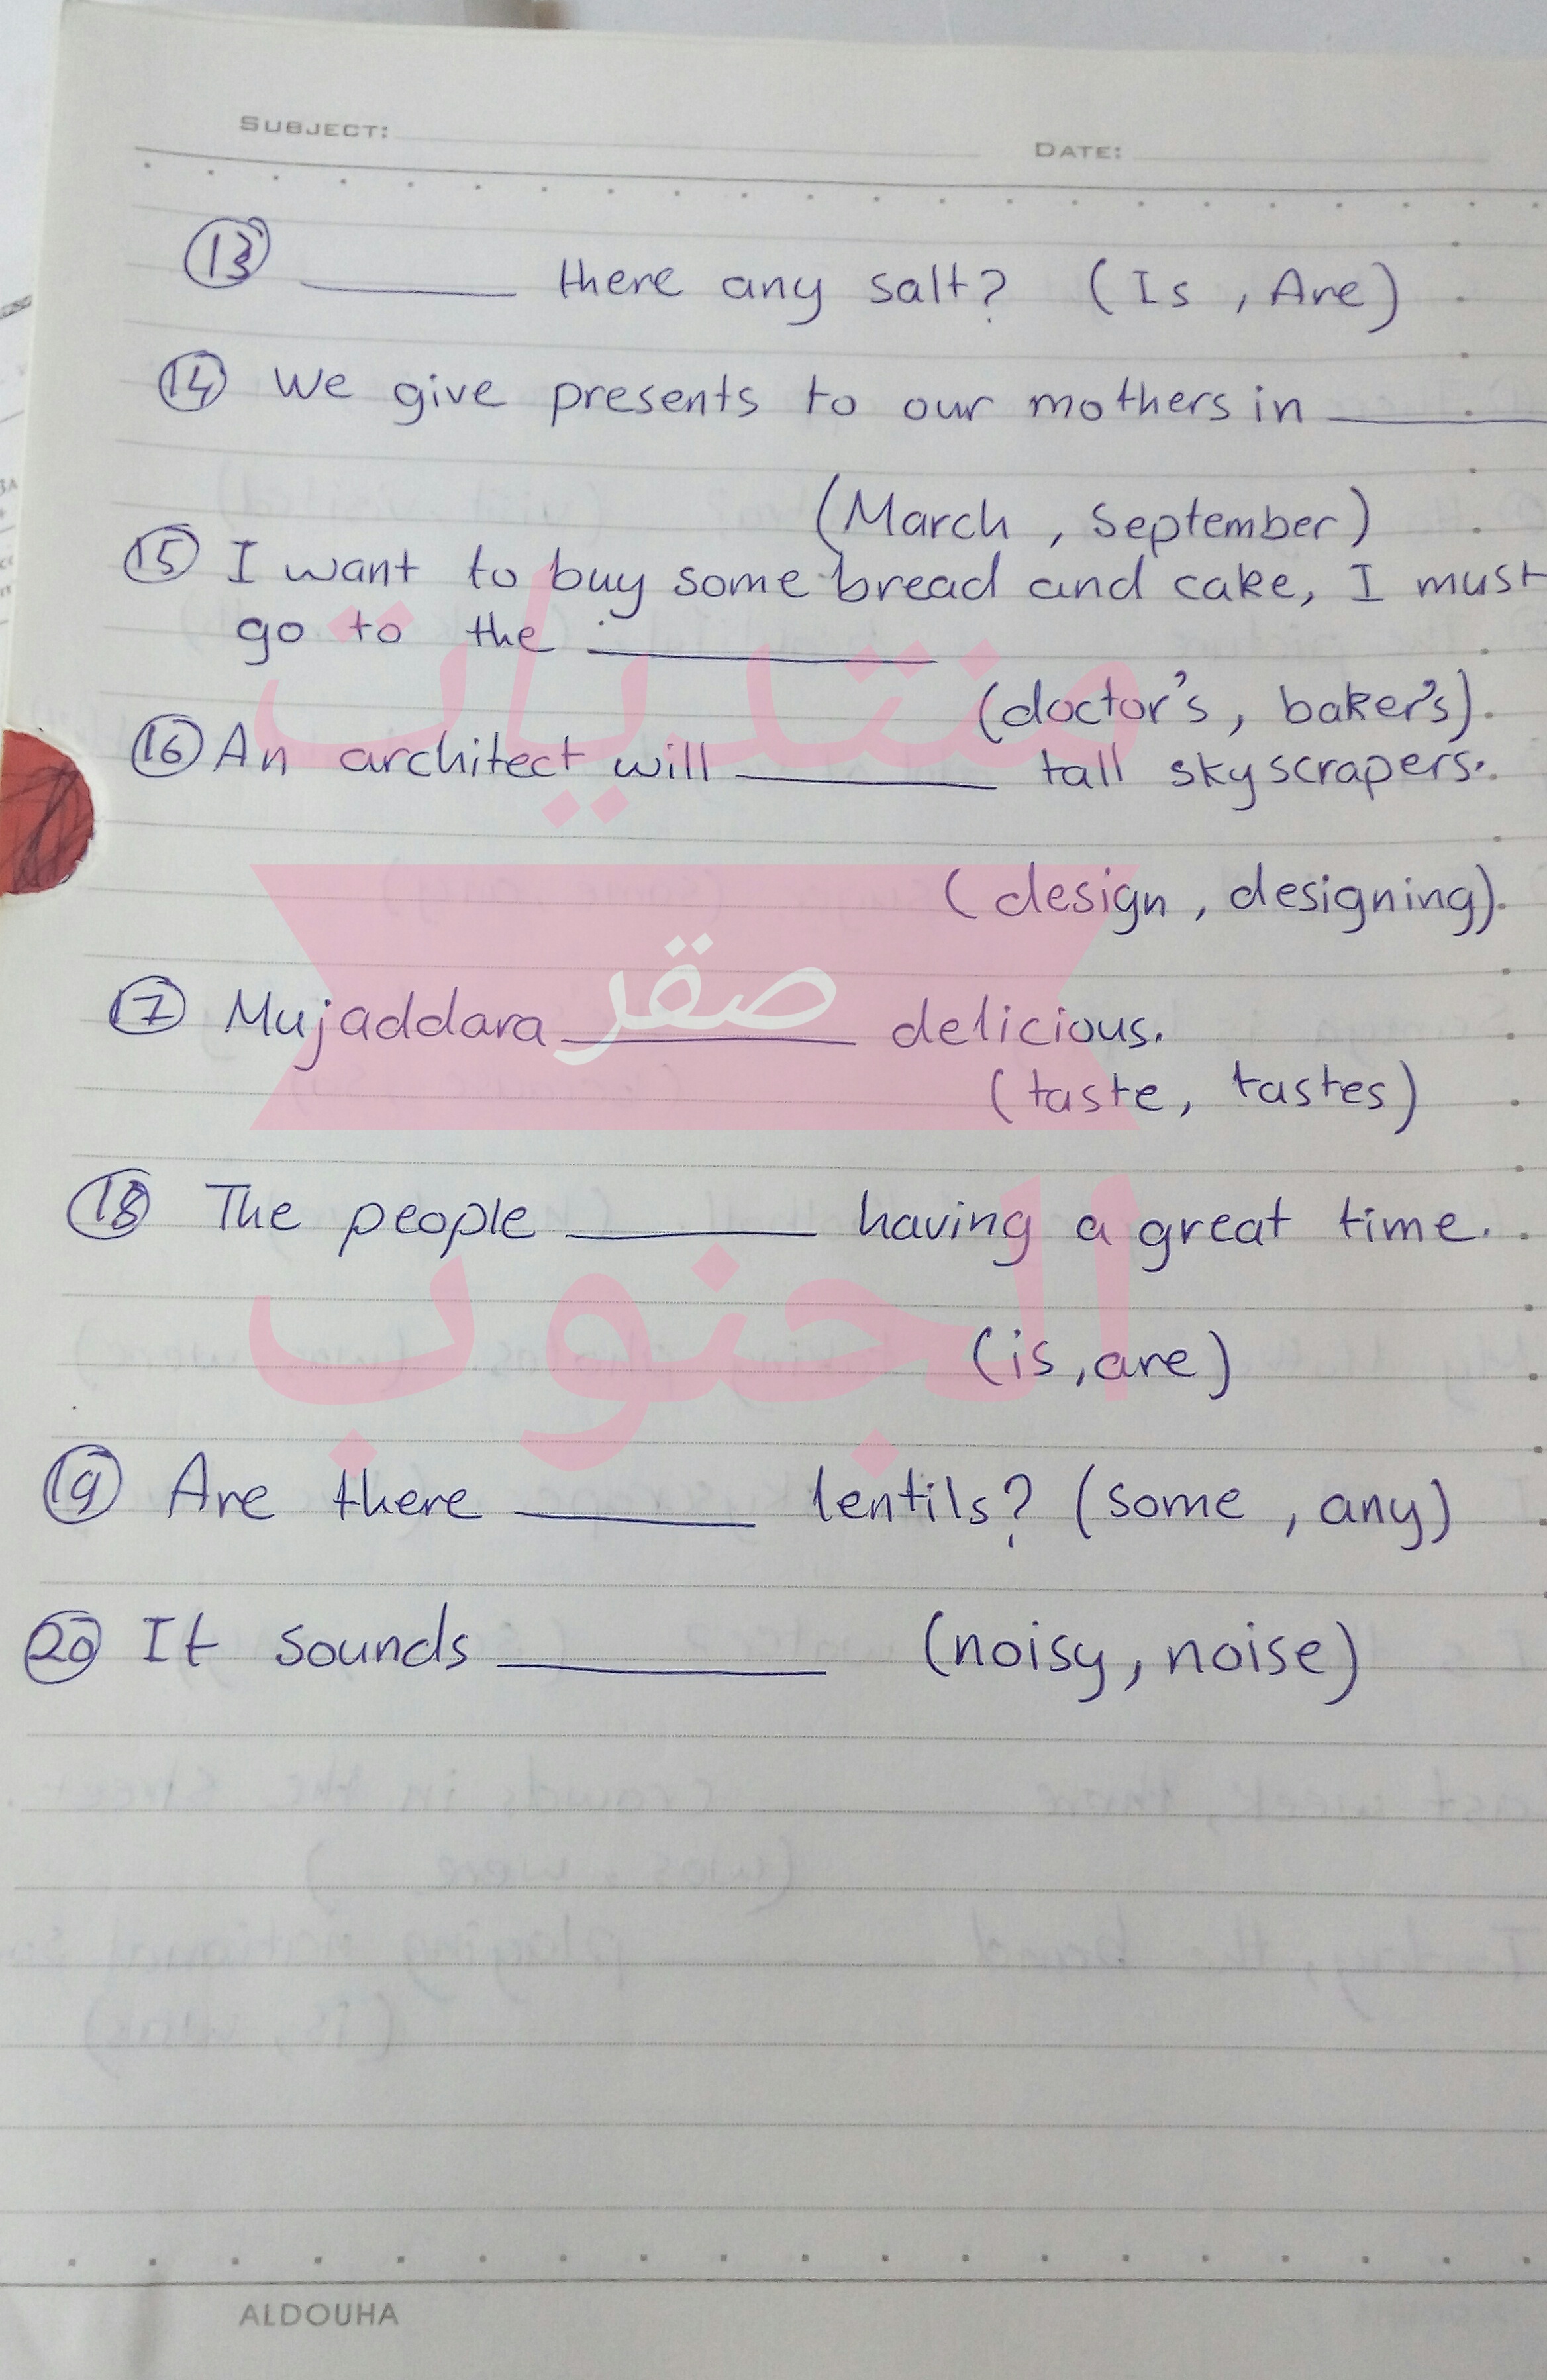 SUBJECT:
DATE:
13 ______ there any salt? (Is , Are)
14 We give presents to our mothers in ______
(March , September)
15 I want to buy some bread and cake, I must
go to the ______
(doctor's, baker's).
16 An architect will ______ tall skyscrapers.
(design , designing).
17 Mujaddara ______ delicious.
(taste, tastes)
18 The people ______ having a great time.
(is , are)
19 Are there ______ lentils? (some , any)
20 It sounds ______ (noisy, noise)
منتديات
صقر
الجنوب
ALDOUHA